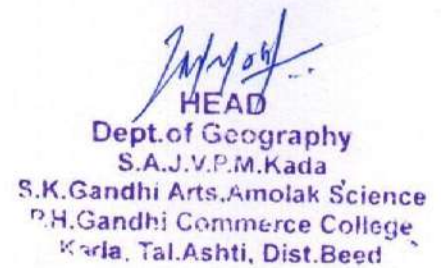 HEAD
Dept.of Geography
S.A.J.V.P.M.Kada
S.K.Gandhi Arts,Amolak Science
P.H.Gandhi Commerce College
Kada, Tal.Ashti, Dist.Beed